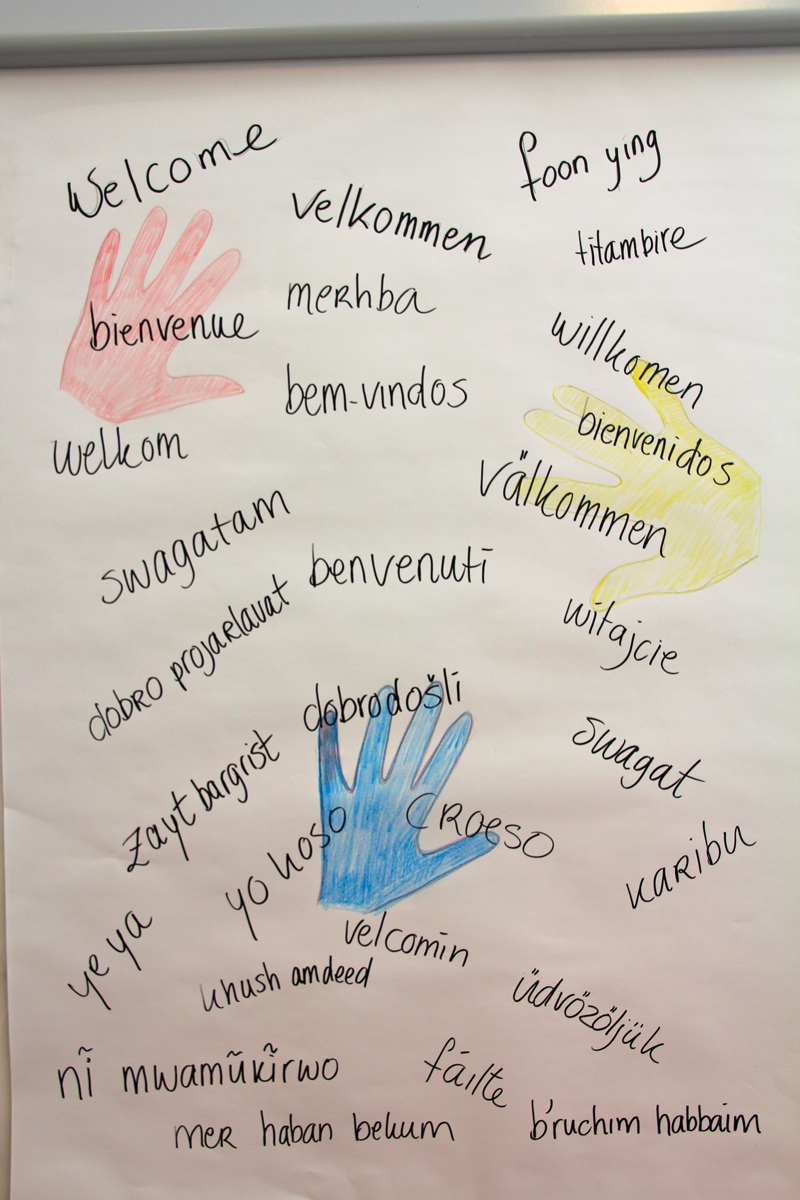 Welcome
foon ying
velkommen
titambire
merhba
bienvenue
willkomen
bem-vindos
bienvenidos
welkom
välkommen
swagatam
benvenuti
witajcie
dobro projarlavat
dobrodošli
swagat
zayt bargrist
yo koso
CROESO
karibu
ye ya
velcomin
khush amdeed
üdvözöljük
nĩ mwamũkĩrwo
fáilte
mer haban bekum
b'ruchim habbaim